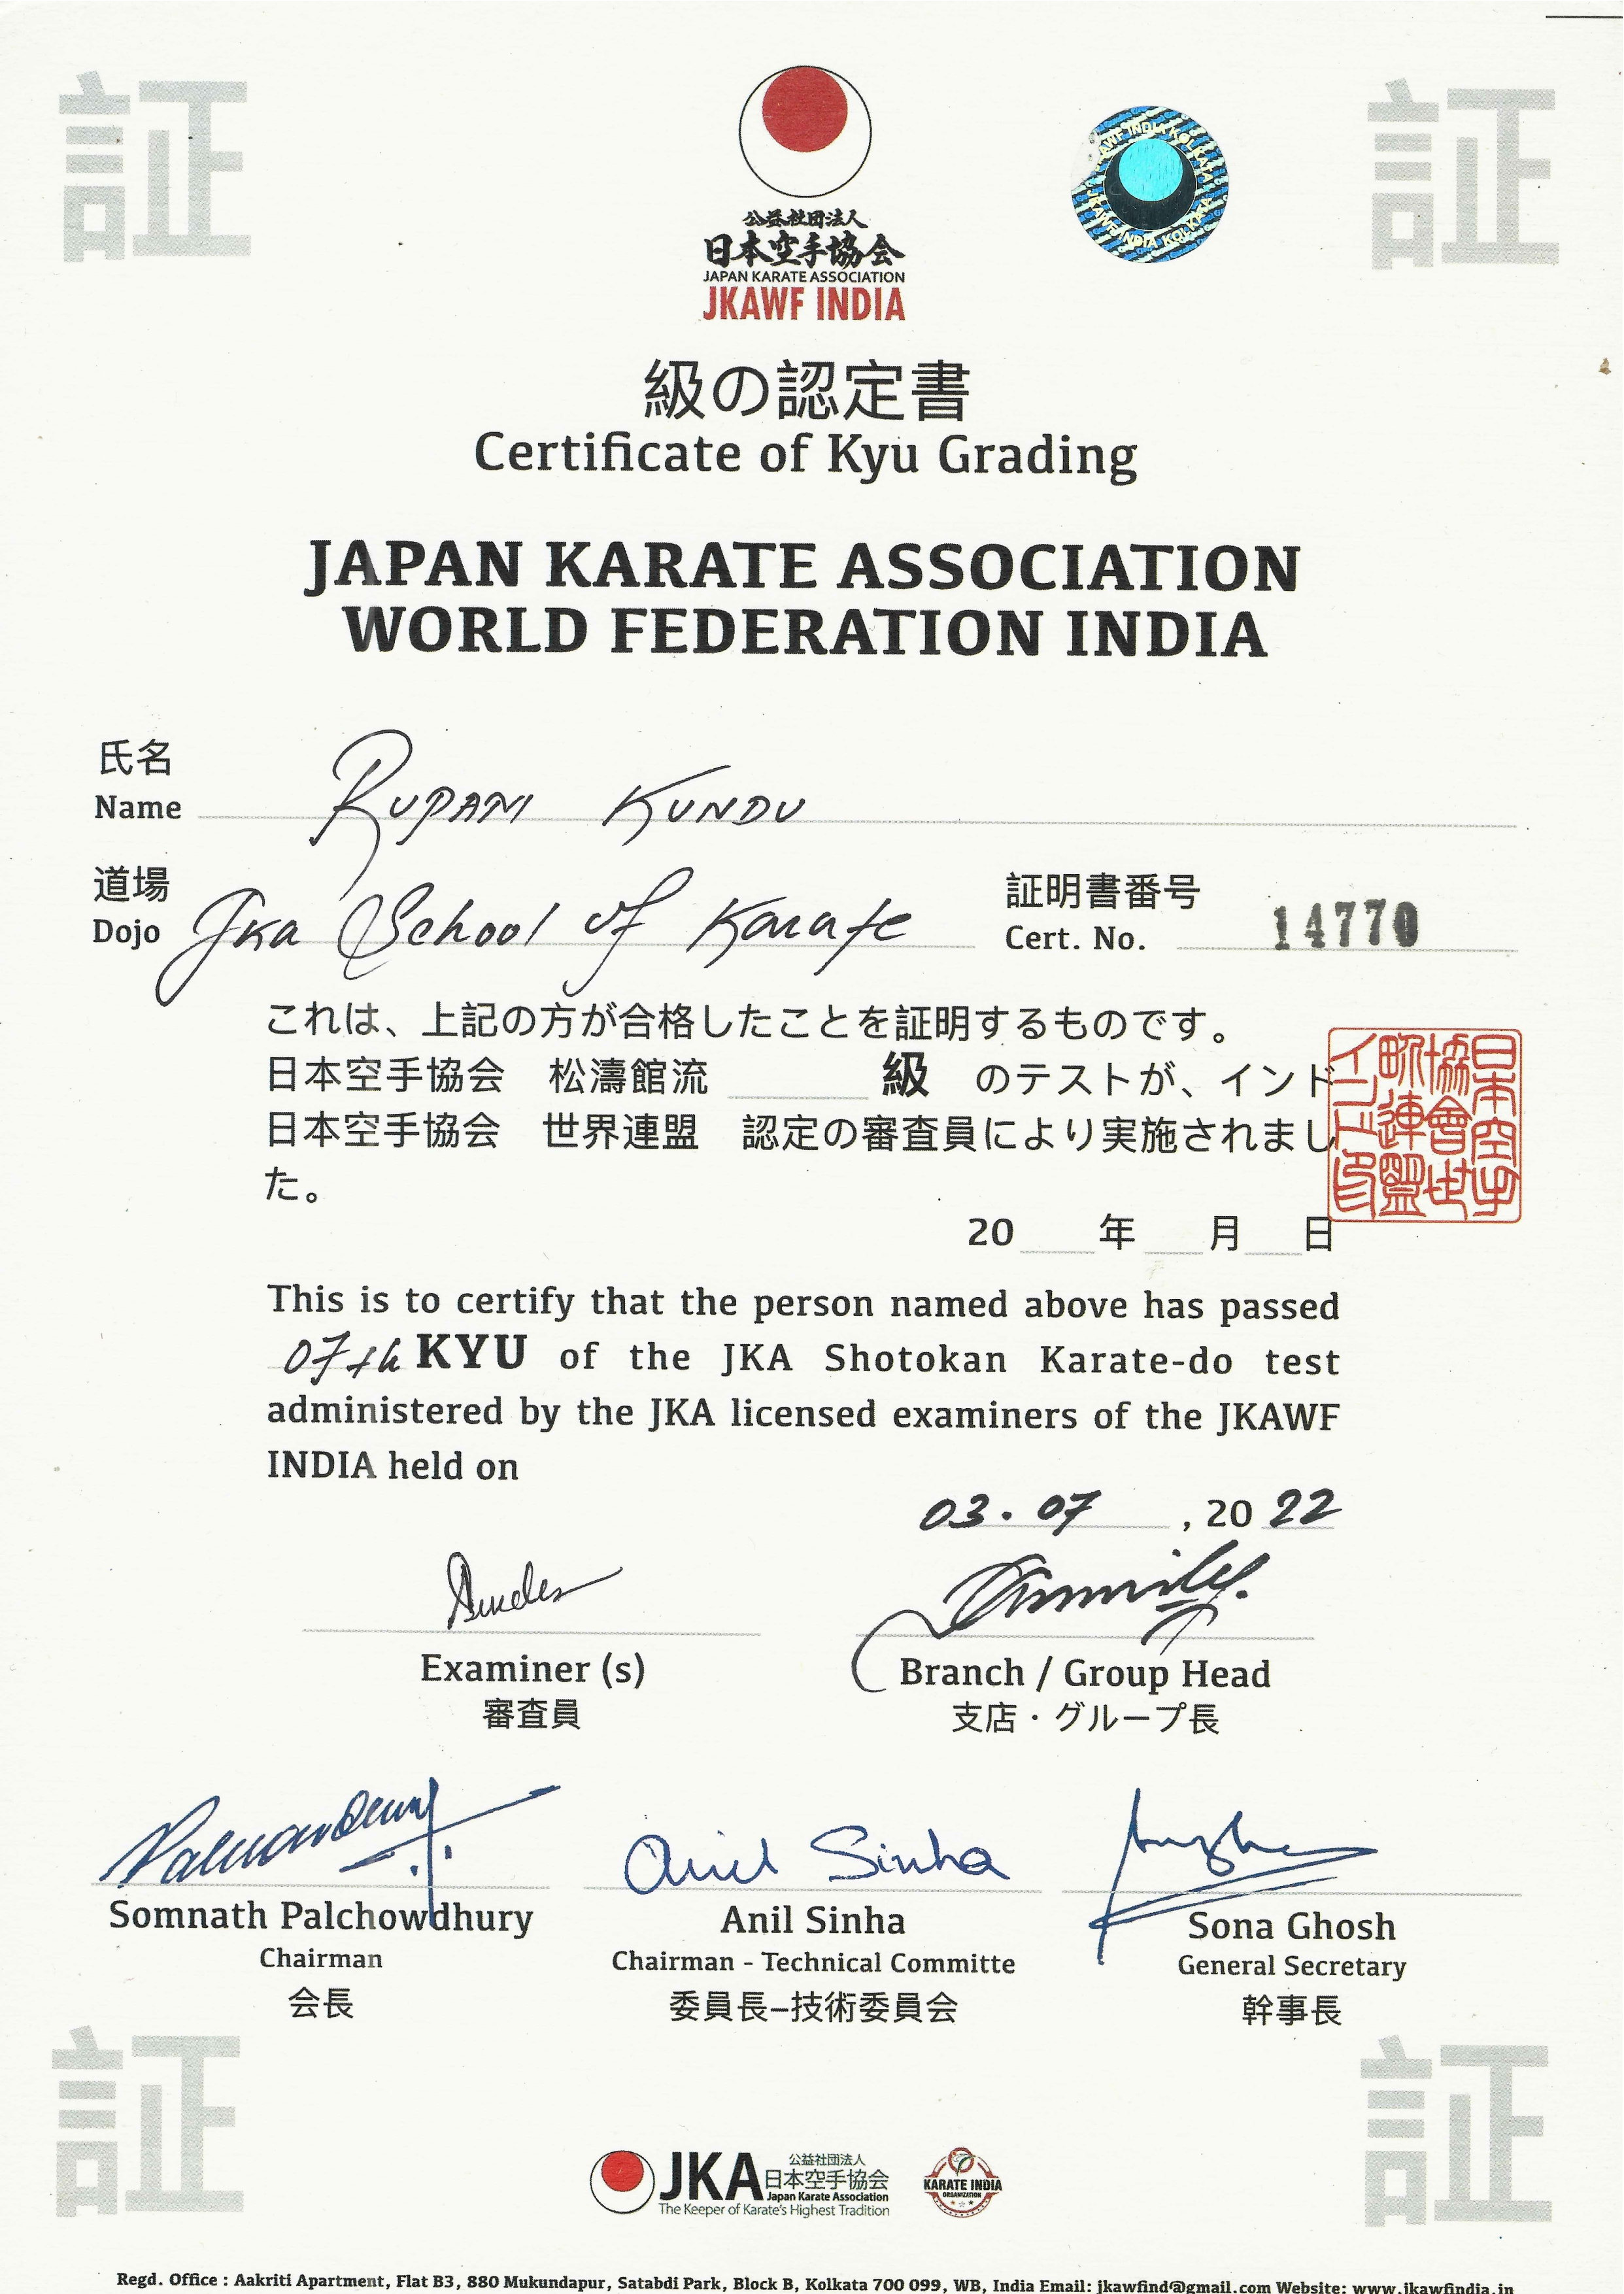 証
証
公益社団法人
日本空手協会
JAPAN KARATE ASSOCIATION
JKAWF INDIA
JKAWF INDIA KOLKATA
JKAWF INDIA KOLKATA
級の認定書
Certificate of Kyu Grading
JAPAN KARATE ASSOCIATION
WORLD FEDERATION INDIA
氏名
Name RUPAM KUNDU
道場
Dojo Jka School of Karate
証明書番号
Cert. No. 14770
これは、上記の方が合格したことを証明するものです。
日本空手協会 松濤館流 級 のテストが、インド
日本空手協会 世界連盟 認定の審査員により実施されまし
た。
日本空手
協會世
界連盟
インド印
20 年 月 日
This is to certify that the person named above has passed
07th KYU of the JKA Shotokan Karate-do test
administered by the JKA licensed examiners of the JKAWF
INDIA held on
03.07 , 20 22
Examiner (s)
審査員
Branch / Group Head
支店・グループ長
Somnath Palchowdhury
Chairman
会長
Anil Sinha
Anil Sinha
Chairman - Technical Committe
委員長–技術委員会
Sona Ghosh
General Secretary
幹事長
証
証
JKA
公益社団法人
日本空手協会
Japan Karate Association
The Keeper of Karate's Highest Tradition
KARATE INDIA
ORGANIZATION
Regd. Office : Aakriti Apartment, Flat B3, 880 Mukundapur, Satabdi Park, Block B, Kolkata 700 099, WB, India Email: jkawfind@gmail.com Website: www.jkawfindia.in